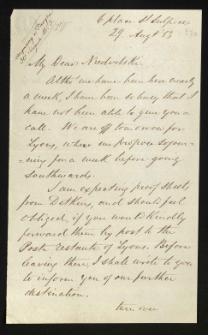 6 place St Sulpice
29 Augt 53
My Dear
Altho' we have been here nearly
a week, I have been so busy that I
have not been able to give you a
call. We are off tomorrow for
Lyons, where we propose sojour-
ning for a week before going
Southwards.
I am expecting proof sheets
from and should feel
obliged if you would kindly
forward them by post to the
Poste restante of Lyons. Before
leaving there I shall write to you
to inform you of our further
destination.
turn over